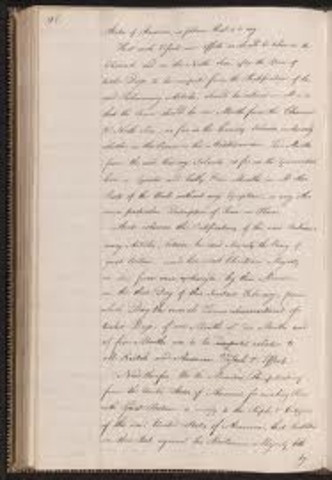 States of America, as follows that is to say
That such Vessels and effects as should be taken in the
Channel and in the North Seas after the Space of
twelve Days to be computed from the Ratification of the
said Preliminary Articles, should be restored on all sides
that the Term should be one Month from the Channel
& North Seas, as far as the Canary Islands inclusively
whether in the Ocean or in the Mediterranean Two Months
from the said Canary Islands as far as the Equinoctial
Line or Equator and lastly Five Months in all other
Parts of the World without any Exception, or any other
more particular Description of Time or Place.
And whereas the Ratifications of the said Prelimi-
nary Articles, between his said Majesty the King of
great Britain and his most Christian Majesty
in due form were exchanged by their Ministers
on the third Day of this Instant February, from
which Day the several Terms abovementioned of
twelve Days, of one Month of two Months and
of five Months are to be computed relative to
all British and American Vessels & Effects
Now therefore We the Ministers Plenipotentiary
from the United States of America for making Peace
with Great Britain do notify to the People & Citizens
of the said United States of America that Hostilities
on their Part against his Britannic Majesty both
by